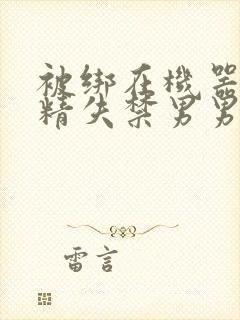 被绑在機器
精失禁男男
雷言